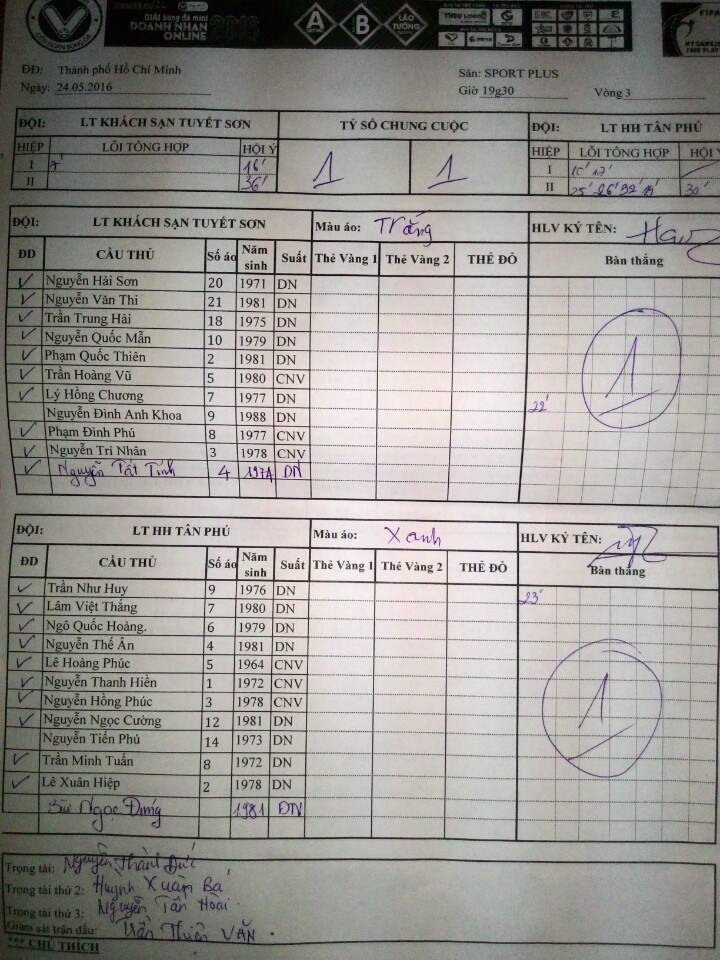 LIÊN QUÂN BÓNG ĐÁ
GIẢI bóng đá mini
DOANH NHÂN
ONLINE 2016
A B LÃO TƯỚNG
FIFA
MY GAME IS
FAIR PLAY
ĐĐ: Thành phố Hồ Chí Minh Sân: SPORT PLUS
Ngày: 24.05.2016 Giờ 19g30 Vòng 3
ĐỘI: LT KHÁCH SẠN TUYẾT SƠN TỶ SỐ CHUNG CUỘC ĐỘI: LT HH TÂN PHÚ
HIỆP LỖI TỔNG HỢP HỘI Ý 1 1 HIỆP LỖI TỔNG HỢP HỘI Ý
I 7' 16' I 17'
II 36' II 25' 26' 32' 30'
ĐỘI: LT KHÁCH SẠN TUYẾT SƠN Màu áo: Trắng HLV KÝ TÊN:
ĐD CẦU THỦ Số áo Năm sinh Suất Thẻ Vàng 1 Thẻ Vàng 2 THẺ ĐỎ Bàn thắng
Nguyễn Hải Sơn 20 1971 DN
Nguyễn Văn Thi 21 1981 DN
Trần Trung Hải 18 1975 DN
Nguyễn Quốc Mẫn 10 1979 DN
Phạm Quốc Thiên 2 1981 DN 1
Trần Hoàng Vũ 5 1980 CNV
Lý Hồng Chương 7 1977 DN
Nguyễn Đình Anh Khoa 9 1988 DN 22'
Phạm Đình Phú 8 1977 CNV
Nguyễn Tri Nhân 3 1978 CNV
Nguyễn Tất Tính 4 1974 DN
ĐỘI: LT HH TÂN PHÚ Màu áo: Xanh HLV KÝ TÊN:
ĐD CẦU THỦ Số áo Năm sinh Suất Thẻ Vàng 1 Thẻ Vàng 2 THẺ ĐỎ Bàn thắng
Trần Như Huy 9 1976 DN 23'
Lâm Việt Thắng 7 1980 DN
Ngô Quốc Hoàng. 6 1979 DN
Nguyễn Thế Ân 4 1981 DN
Lê Hoàng Phúc 5 1964 CNV
Nguyễn Thanh Hiền 1 1972 CNV 1
Nguyễn Hồng Phúc 3 1978 CNV
Nguyễn Ngọc Cường 12 1981 DN
Nguyễn Tiến Phủ 14 1973 DN
Trần Minh Tuấn 8 1972 DN
Lê Xuân Hiệp 2 1978 DN
Bùi Ngọc Dũng 1981 DN
Trọng tài: Nguyễn Thành Đức
Trọng tài thứ 2: Huỳnh Xuân Bá
Trọng tài thứ 3: Nguyễn Tấn Hoài
Giám sát trận đấu: Trần Thiện VĂN
*** CHÚ THÍCH